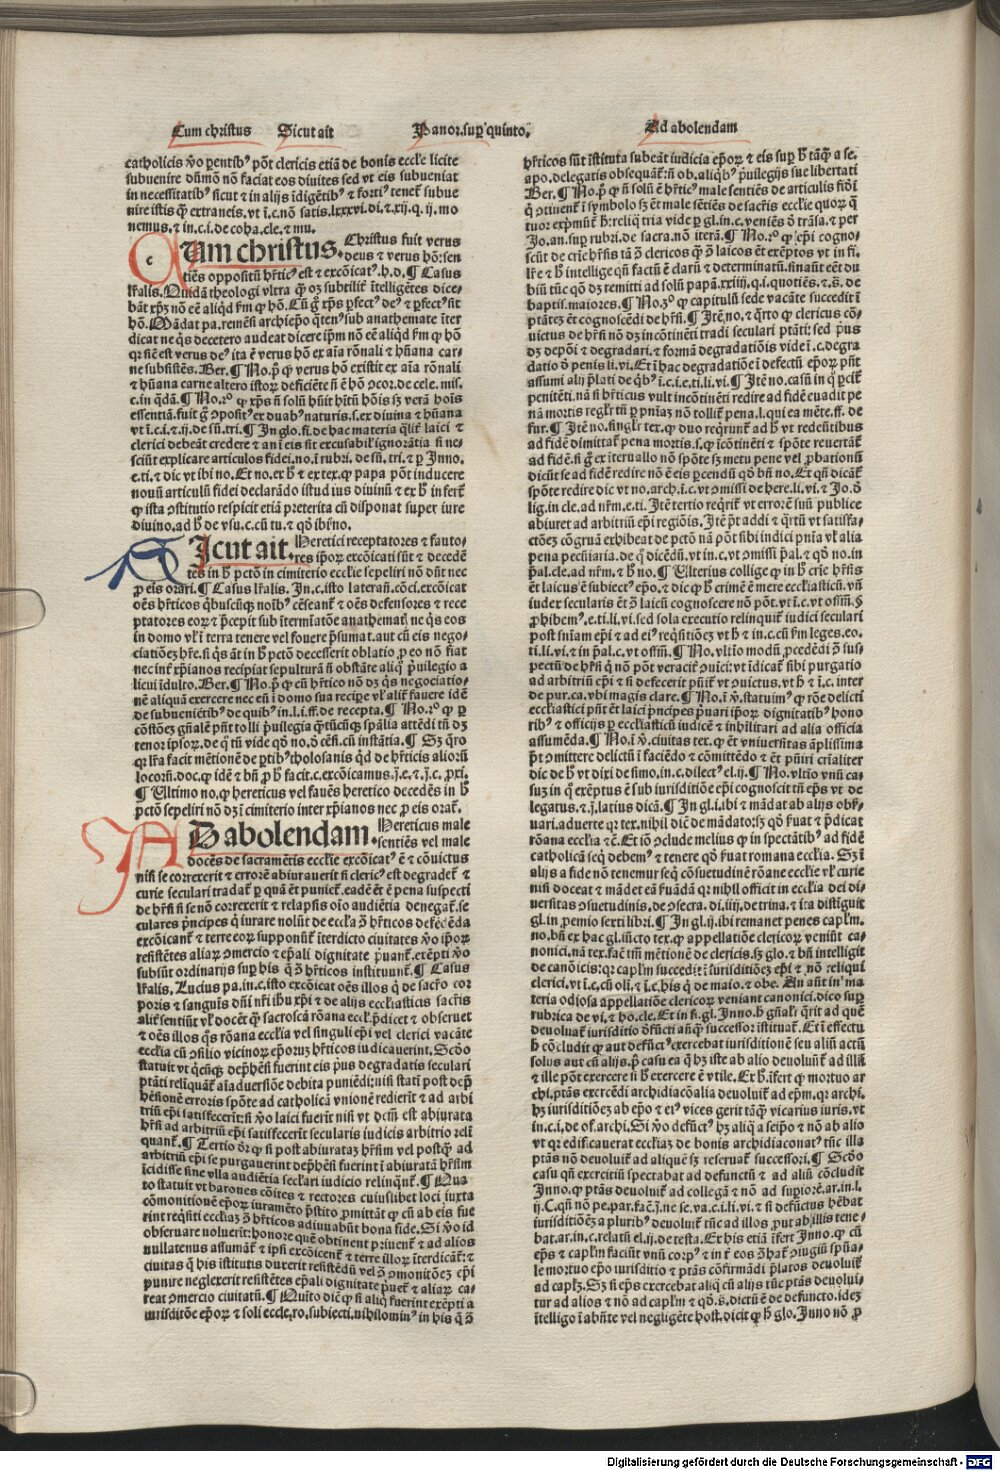 Cum christus Sicut ait Panor. sup̄ quinto. Ad abolendam
catholicis v̄o ꝑentibꝰ pōt clericis etiā de bonis eccl̄e licite
subuenire dūmō nō faciat eos diuites sed vt eis subueniat
in necessitatibꝰ sicut ⁊ in alijs īdigētibꝰ ⁊
nire istis qͣ extraneis. vt ī.c. nō satis. lxxxvi. di. ⁊ xij. q. ij. mo
nemus. ⁊ in .c.i. de coha. cle. ⁊ mu.
Cum christus. Christus fuit verus
deus ⁊ verus hō: sen
tiēs oppositū hr̄ticꝰ est ⁊ excōicatꝰ. h.d. ¶ Casus
lr̄alis. Quidā theologi vltra qͣ oꝫ subtilit̄ ītelligētes dice
bāt xp̄m nō eē aliqͥd ẜm ꝙ hō.
hō. Mādat pa. remēsi archiep̄o
dicat ne qͥs decetero audeat dicere ip̄m nō eē aliqͥd ẜm ꝙ hō
qꝛ sic̄ est verus deꝰ ita ē verus hō ex aīa rōnali ⁊ hūana car-
ne subsistēs. Ber. ¶ No. pͥ ꝙ verus hō existit ex aīa rōnali
⁊ hūana carne
c. in qͣdā. ¶ No. 2ͦ ꝙ xp̄s n̄ solū hūit hītū hōis ſꝫ verā hoīs
essentiā. fuit g̊ ↄpositꝰ ex duabꝰ naturis. s. ex diuina ⁊ hūana
vt ī.c.i. ⁊ .ij. de sū. tri. ¶ In glo. fi. de hac materia qͣlit̄ laici ⁊
clerici debeāt credere ⁊ an ī eis sit excusabil̓ ignorātia si ne-
sciūt explicare articulos fidei. no. ī rubri. de sū. tri. ⁊ ꝑ Inno.
e. ti. ⁊ dic vt ibi no. Et no. ex h̄ ⁊ ex tex. ꝙ papa pōt inducere
nouū articulū fidei declarādo istud ius diuinū ⁊ ex h̄
ꝙ ista ↄstitutio respicit etiā preterita cū disponat super iure
diuino. ad h̄ de vsu. c. cū tu. ⁊ qd̓ ibi no.
Sicut ait. Heretici receptatores ⁊ fauto-
res ip̄oꝝ excōicati sūt ⁊ decedē
tes in h̄ pctō in cimiterio ecclie sepeliri nō dn̄t nec
ꝓ eis orari. ¶ Casus lr̄alis. In .c. isto laterān. cōci. excōicat
oēs hr̄ticos qͥbuscūqꝫ noībꝰ cēseant̄ ⁊ oēs defensores ⁊ rece
ptatores eoꝝ ⁊ p̄cepit sub ītermīatōe anathemat̄ ne qͥs eos
in domo vl̓ ī terra tenere vel fouere p̄sumat. aut cū eis nego-
ciatiōeꝫ hr̄e. si qͥs āt in h̄ pctō decesserit oblatio ꝓ eo nō fiat
nec int̄ xp̄ianos recipiat sepulturā n̄ obstāte aliqͦ p̄uilegio a
licui īdulto. Ber. ¶ No. pͥ ꝙ cū hr̄tico nō dꝫ qͥs negociatio-
nē aliquā exercere nec eū ī domo sua recipe vl̓ alit̄ fauere
de subueniētibꝰ de quibꝰ in .l.i. ff. de recepta. ¶ No. 2ͦ ꝙ ꝑ
cōstōes gn̄ales pn̄t tolli p̄uilegia qͣtūcūqꝫ sp̄alia attēdi tn̄ dꝫ
tenor ipsoꝝ. de qͦ tū vide qd̓ no. ō cēsi. cū instātia. ¶ Sꝫ qͥro
qꝛ lr̄a facit mētionē de ꝑtibꝰ tholosanis qͥd de hr̄ticis alioꝝ
locoꝝ. doc. ꝙ idē ⁊ bn̄ ꝓ h̄ facit .c. excōicamus. j.e. ⁊ .j.c. ꝓxi.
¶ Ultimo no. ꝙ hereticus vel fauēs heretico decedēs in h̄
pctō sepeliri nō dꝫ ī cimiterio inter xp̄ianos nec ꝓ eis orat̄.
Ad abolendam. Hereticus male
sentiēs vel male
docēs de sacramētis ecclie excōicatꝰ ē ⁊ cōuictus
nisi se correxerit ⁊ errorē abiurauerit si clericꝰ est degradet̄ ⁊
curie seculari tradat̄ ꝑ quā ēt puniet̄. eadē ēt ē pena suspecti
de hr̄si si se nō correxerit ⁊ relapsis oīo audiētia denegat̄. se
culares p̄ncipes qͥ iurare nolūt de eccl̄ia ↄ̄ hr̄ticos defēdēda
excōicant̄ ⁊ terre eoꝝ supponūt̄ īterdicto ciuitates v̄o ip̄oꝝ
resistētes aliaꝝ ↄmercio ⁊ ep̄ali dignitate p̄uant̄. exēpti v̄o
subsūt ordinarijs suꝑ his qͥ ↄ̄ hr̄ticos instituunt̄. ¶ Casus
lr̄alis. Lucius pa. in .c. isto excōicat oēs illos qͥ de sacr̄o cor
poris ⁊ sanguīs dn̄i nr̄i ihu xp̄i ⁊ de alijs eccl̄iasticis sacr̄is
alit̄ sentiūt vl̓ docēt qͣ sacroscā rōana eccl̄. p̄dicet ⁊ obseruet
⁊ oēs illos qͥs rōana eccl̄ia vel singuli ep̄i vel clerici vacāte
eccl̄ia cū ↄsilio vicinoꝝ ep̄oꝝ hr̄ticos iudicauerint. Scd̓o
statuit vt qͥcūqꝫ dep̄hēsi fuerint eis pͥus degradatis seculari
ptāti relīquāt̄ aīaduersiōe debita puniēdi: nisi statī post dep̄
hēsionē erroris spōte ad catholicā vnionē redierīt ⁊ ad arbi
triū ep̄i satisfecerīt: si v̄o laici fuerīt nisi vt dcm̄ est abiurata
hr̄si ad arbitriū ep̄i satisfecerīt secularis iudicis arbitrio reli
quant̄. ¶ Tertio dr̄ ꝙ si post abiurataꝫ hr̄sim vel postqͣ ad
arbitriū ep̄i se purgauerint dep̄hēsi fuerint ī abiuratā hr̄sim
īcidisse sine vlla audiētia sec̄lari iudicio relinqͥnt̄. ¶ Qua
to statuit vt barones cōites ⁊ rectores cuiuslibet loci iuxta
cōmonitionē ep̄oꝝ iuramēto p̄stito ꝓmittāt ꝙ cū ab eis fue
rint reqͥsiti eccl̄iaꝫ ↄ̄ hr̄ticos adiuuabūt bona fide. Si v̄o id
obseruare noluerīt: honore quē obtinent priuent̄ ⁊ ad alios
nullatenus assumāt̄ ⁊ ip̄si excōicent̄ ⁊ terre illoꝝ īterdicāt̄: ⁊
ciuitas qͥ his īstitutis duxerit resistēdū vel ↄ̄ ↄmonitōeꝫ ep̄i
punire neglexerit resistētes ep̄ali dignitate p̄uet̄ ⁊ aliaꝝ ca-
reat ↄmercio ciuitatū. ¶ Quīto dic̄ ꝙ si aliqͥ fuerint exēpti a
iurisditōe ep̄oꝝ ⁊ soli eccl̄e. ro. subiecti. nihilominꝰ in his qͥ ↄ̄
hr̄ticos sūt īstituta subeāt iudicia ep̄oꝝ ⁊ eis suꝑ h̄ tāqͣ a se.
apo. delegatis obsequāt̄: n̄ ob. aliqͥbꝰ p̄uilegijs sue libertati
Ber. ¶ No. pͥ ꝙ n̄ solū ē hr̄ticꝰ male sentiēs de articulis fidei
qͥ ↄtinent̄ ī symbolo ſꝫ ēt male sētiēs de sacr̄is ecclie quoꝝ qͥ
tuor exp̄mūt̄ h̄: reliqͥ tria vide ꝑ gl. in .c. veniēs ō trāsa. ⁊ per
Jo. an. suꝑ rubri. de sacra. nō iterā. ¶ No. 2ͦ ꝙ ep̄i cogno-
scūt de crīe hr̄sis tā ↄ̄ clericos qͣ ↄ̄ laicos ēt exēptos vt in fi.
baptis. maiores. ¶ No. 3ͦ ꝙ capitulū sede vacāte succedit ī
ptātez ēt cognoscēdi de hr̄si. ¶ Itē no. ⁊ qͣrto ꝙ clericus cō-
uictus de hr̄si nō dꝫ incōtinēti tradi seculari ptāti: sed pͥus
dꝫ depōi ⁊ degradari. ⁊ formā degradatiōis vide ī .c. degra
datio ō penis li. vi. Et ī hac degradatiōe ī defectū ep̄oꝝ pn̄t
assumi alij p̄lati de qͥbꝰ ī .c.i. e. ti. li. vi. ¶ Itē no. casū in qͦ
peniteti. nā si hr̄ticus vult incōtinēti redire ad fidē euadit pe
nā mortis regl̓r tn̄ ꝑ pn̄iaꝫ nō tollit̄ pena. l. qui ea mēte. ff. de
fur. ¶ Itē no. singl̓r tex. ꝙ duo reqͥrunt̄ ad h̄ vt redeūtibus
ad fidē dimittat̄ pena mortis. s. ꝙ īcōtinēti ⁊ spōte reuertāt̄
ad fidē. si g̊ ex īteruallo nō spōte ſꝫ metu pene vel ꝓbationū
dicūt̄ se ad fidē redire nō ē eis ꝑcendū qd̓ bn̄ no. Et qn̄ dicāt̄
spōte redire dic vt no. arch. ī .c. vt ↄmissi de here. li. vi. ⁊ Jo. ō
lig. in cle. ad nr̄m. e. ti. Itē tertio reqͥrit̄ vt errorē suū publice
abiuret ad arbitriū ep̄i regiōis. Itē p̄t addi ⁊ qͣrtū vt satisfa-
ctōeꝫ cōgruā exhibeat de pctō nā pōt sibi indici pn̄ia vl̓ alia
pena pecūiaria. de qͣ dicēdū. vt in .c. vt ↄmissi p̄al. ⁊ qd̓ no. in
p̄al. cle. ad nr̄m. ⁊ h̄ no. ¶ Ulterius collige ꝙ in h̄ crīe hr̄sis
ēt laicus ē subiectꝰ ep̄o. ⁊ dic ꝙ h̄ crimē ē mere eccl̄iasticū. vn̄
iudex secularis ēt ↄ̄ laicū cognoscere nō pōt. vt ī .c. vt
ꝓhibem̄ꝰ. e. ti. li. vi. sed sola executio relinquit̄ iudici seculari
post sn̄iam ep̄i ⁊ ad eiꝰ reqͥsitiōeꝫ vt h̄ ⁊ in .c. cū ẜm leges. eo.
ti. li. vi. ⁊ in p̄al. c. vt offm̄. ¶ No. vltīo modū ꝓcedēdi ↄ̄ sus-
pectū de hr̄si qn̄ nō pōt veracit̄ ↄuici: vt īdicat̄ sibi purgatio
ad arbitriū ep̄i ⁊ si defecerit punit̄ vt ↄuictus. vt h̄ ⁊ ī .c. inter
de pur. ca. vbi magis clare. ¶ No. ī v̄. statuimꝰ ꝙ rōe delicti
eccl̄iastici pn̄t ēt laici p̄ncipes p̄uari ip̄oꝝ dignitatibꝰ hono
ribꝰ ⁊ officijs ꝑ eccl̄iasticū iudicē ⁊ inhilitari ad alia officia
assumēda. ¶ No. ī v̄. ciuitas tex. ꝙ ēt vniuersitas āplissima
p̄t ↄmittere delictū ī faciēdo ⁊ cōmittēdo ⁊ ēt pūiri crīaliter
dic de h̄ vt dixi de simo. in .c. dilectꝰ el. ij. ¶ No. vltīo vnū ca-
suꝫ in qͦ exēptus ē sub iurisditiōe ep̄i cognoscit tn̄ ep̄s vt de
legatus. ⁊ .j. latius dicā. ¶ In gl.i. ibi ⁊ mādat ab alijs obẜ-
uari. aduerte qꝛ tex. nihil dic̄ de mādato: ſꝫ qd̓ ẜuat ⁊ p̄dicat
rōana eccl̄ia ⁊ē. Et iō ↄclude melius ꝙ in spectātibꝰ ad fidē
catholicā seqͥ debemꝰ ⁊ tenere qd̓ ẜuat romana eccl̄ia. Sꝫ ī
alijs a fide nō tenemur seqͥ cōsuetudinē rōane ecclie vl̓ curie
nisi doceat ⁊ mādet eā ẜuādā qꝛ nihil officit in eccl̄ia dei di-
uersitas ↄsuetudinis. de ↄsecra. di. iiij. de trina. ⁊ ita distiguit
gl. in ꝓemio sexti libri. ¶ In gl. ij. ibi remanet penes capl̄m.
no. bn̄ ex hac gl. iūcto tex. ꝙ appellatiōe clericoꝝ veniūt ca-
nonici. nā tex. fac̄ tm̄ mētionē de clericis. ſꝫ glo. ⁊ bn̄ intelligit
de canōicis: qꝛ capl̄m succedit ī iurisditiōeꝫ ep̄i ⁊ nō reliqui
clerici. vt ī .c. cū oli. ⁊ ī .c. his qͥ de maio. ⁊ obe. An aūt inͣ ma
teria odiosa appellatiōe clericoꝝ veniant canonici. dico suꝑ
rubrica de vi. ⁊ ho. cle. Et in fi. gl. Inno. h̄ gn̄alr̓ qͥrit ad quē
deuoluat̄ iurisditio ō̄fūcti anqͣ successor īstituat̄. Et ī effectu
h̄ cōcludit ꝙ aut defūctꝰ exercebat iurisditionē seu aliū actū
solus aut cū alijs. p̄ casu ea qͥ hꝫ iste ab alio deuoluūt̄ ad illū
⁊ ille pōt exercere si h̄ exercere ē vtile. Ex h̄. īfert̄ ꝙ mortuo ar
chi. ptās exercēdi archidiacōalia deuoluit̄ ad ep̄m. qꝛ archi.
hꝫ iurisditiōeꝫ ab ep̄o ⁊ eiꝰ vices gerit tāqͣ vicarius iuris. vt
in .c.i. de of. archi. Si v̄o defūctꝰ hꝫ aliqͣ a seip̄o ⁊ nō ab alio
vt qꝛ edificauerat eccl̄iaꝫ de bonis archidiaconatꝰ tūc illa
ptās nō deuoluit̄ ad aliquē ſꝫ reseruat̄ successori. ¶ Scd̓o
casu qn̄ exercitiū spectabat ad defunctū ⁊ ad aliū cōcludit
Inno. ꝙ ptās deuoluit̄ ad collegā ⁊ nō ad superiorē. ar. in .l.
ij. C. qn̄ nō pe. par. fac̄. j. ne se. va. c.i. li. vi. ⁊ si defūctus hēbat
iurisditiōeꝫ a pluribꝰ deuoluit̄ tūc ad illos ꝓut ab illis tene-
bat. ar. in .c. relatū el. ij. de testa. Ex his etiā īfert Inno. ꝙ cū
ep̄s ⁊ capl̄m faciūt vnū corpꝰ ⁊ int̄ eos ↄ̄hat̄ ↄiugiū spūa-
le mortuo ep̄o iurisditio ⁊ ptās cōfirmādi p̄latos deuoluit̄
ad caplꝫ. Sꝫ si ep̄s exercebat aliqͣ cū alijs tūc ptās deuolui-
tur ad alios ⁊ nō ad capl̄m ⁊ qd̓ .s. dictū ē de defuncto. ideꝫ
ītelligo ī abn̄te vel negligēte host. dicit ꝙ h̄ glo. Inno nō ꝓ
Digitalisierung gefördert durch die Deutsche Forschungsgemeinschaft - DFG